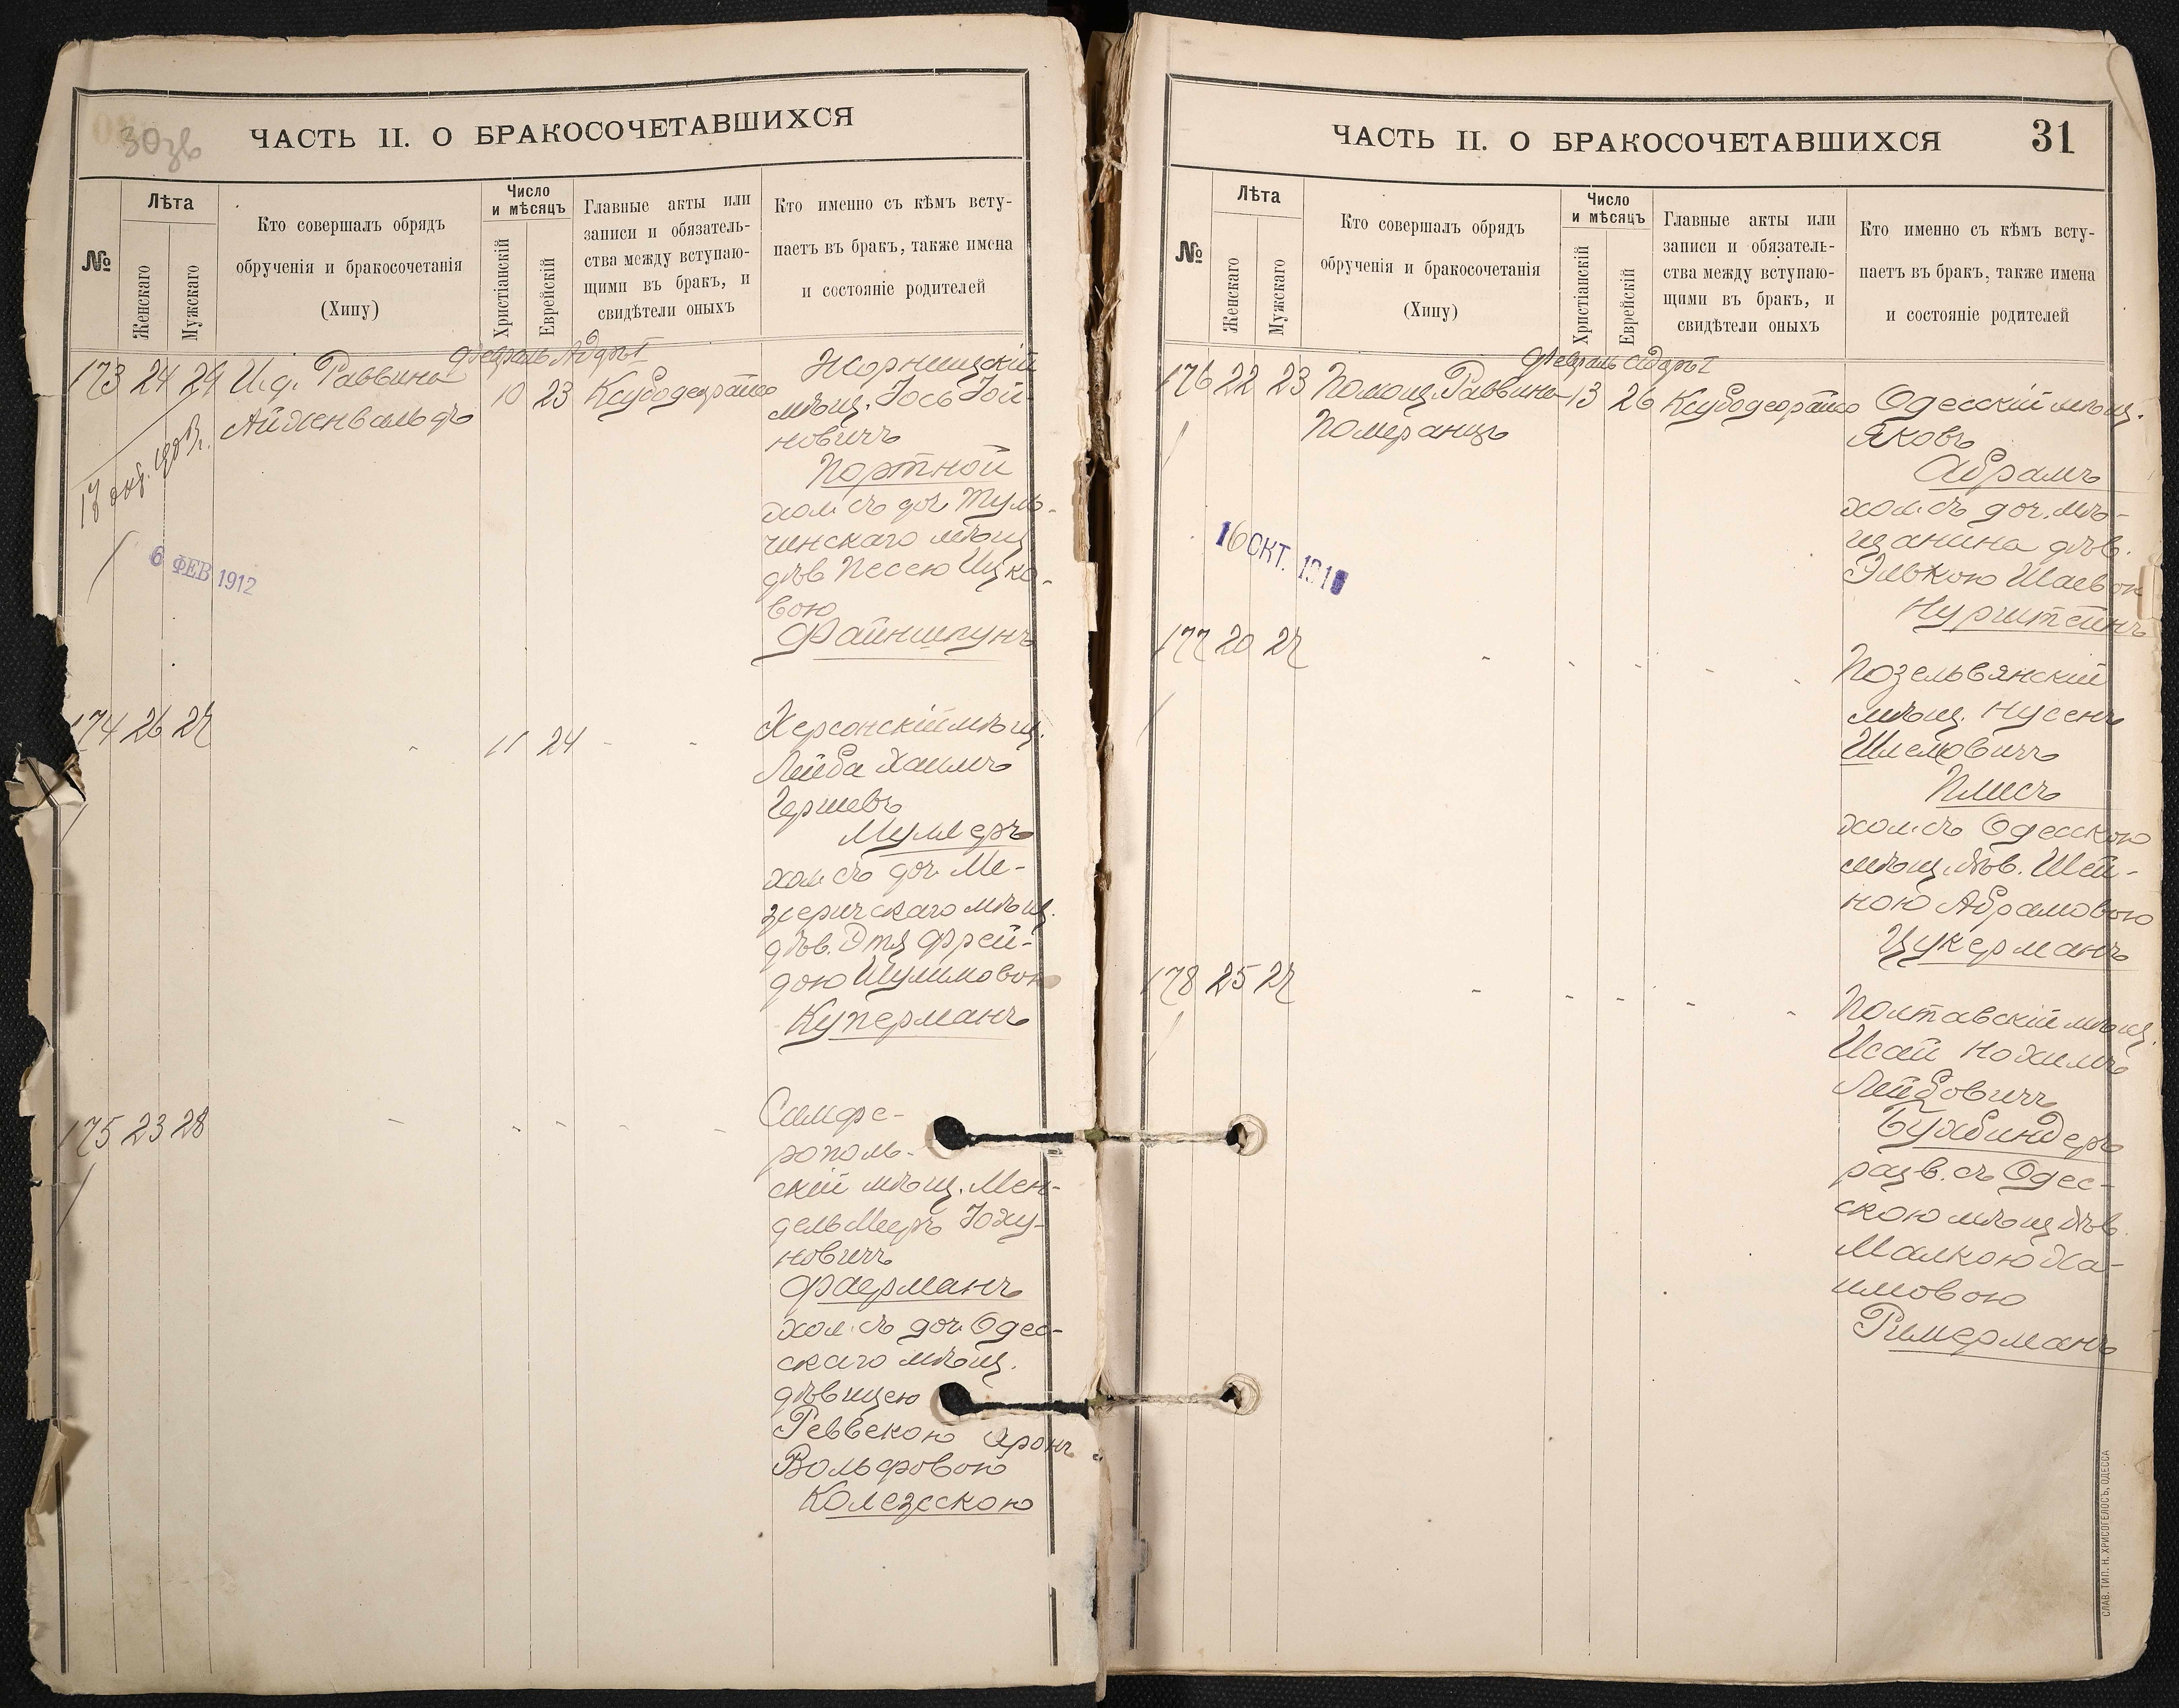 30 зв
ЧАСТЬ II. О БРАКОСОЧЕТАВШИХСЯ
№
Лѣта
Женскаго
Мужскаго
Кто совершалъ обрядъ
обрученія и бракосочетанія
(Хипу)
Число
и мѣсяцъ
Христіанскій
Еврейскій
Главные акты или
записи и обязатель-
ства между вступаю-
щими въ бракъ, и
свидѣтели оныхъ
Кто именно съ кѣмъ всту-
паетъ въ бракъ, также имена
и состояніе родителей
Февраль Адаръ I
173 24 29 И.д. Раввина 10 23
Айхенвальдъ
6 ФЕВ 1912
мѣщ. Іось Іой-
новичъ
Портной
хол. съ доч. Туль-
чинскаго мѣщ.
дѣв. Песею Ицко-
вою
Файншпунъ
174 26 27 - 11 24 - -
Херсонскій мѣщ.
Лейба Хаимъ
Гершевъ
Муллеръ
хол. съ доч. Ме-
жеричскаго мѣщ.
дѣв. Этя Фрей-
дою Шулимовою
Куперманъ
175 23 28 - - - - -
Симфе-
рополь-
скій мѣщ. Мен-
дель Мееръ Іоху-
новичъ
Фаерманъ
хол. съ доч. Одес-
скаго мѣщ.
дѣвицею
Реввекою Аронъ
Вольфовою
Колезскою
ЧАСТЬ II. О БРАКОСОЧЕТАВШИХСЯ 31
№
Лѣта
Женскаго
Мужскаго
Кто совершалъ обрядъ
обрученія и бракосочетанія
(Хипу)
Число
и мѣсяцъ
Христіанскій
Еврейскій
Главные акты или
записи и обязатель-
ства между вступаю-
щими въ бракъ, и
свидѣтели оныхъ
Кто именно съ кѣмъ всту-
паетъ въ бракъ, также имена
и состояніе родителей
Февраль Адаръ I
176 22 23 Помощ. Раввина 13 26
Померанцъ
16 ОКТ. 191
Одесскій мѣщ.
Яковъ
Абрамъ
хол. съ доч. мѣ-
щанина дѣв.
Элькою Шаевою
Нурштейнъ
177 20 27 - - - - -
Позельвянскій
мѣщ. Нусенъ
Шлемовичъ
Плисъ
хол. съ Одесскою
мѣщ. дѣв. Шей-
ною Абрамовою
Цукерманъ
178 25 27 - - - - -
Полтавскій мѣщ.
Исай Нохимъ
Лейбовичъ
Бухбиндеръ
разв. съ Одес-
скою мѣщ. дѣв.
Малкою Ха-
имовою
Римерманъ
СЛАВ. ТИП. Н. ХРИСОГЕЛОСЪ, ОДЕССА